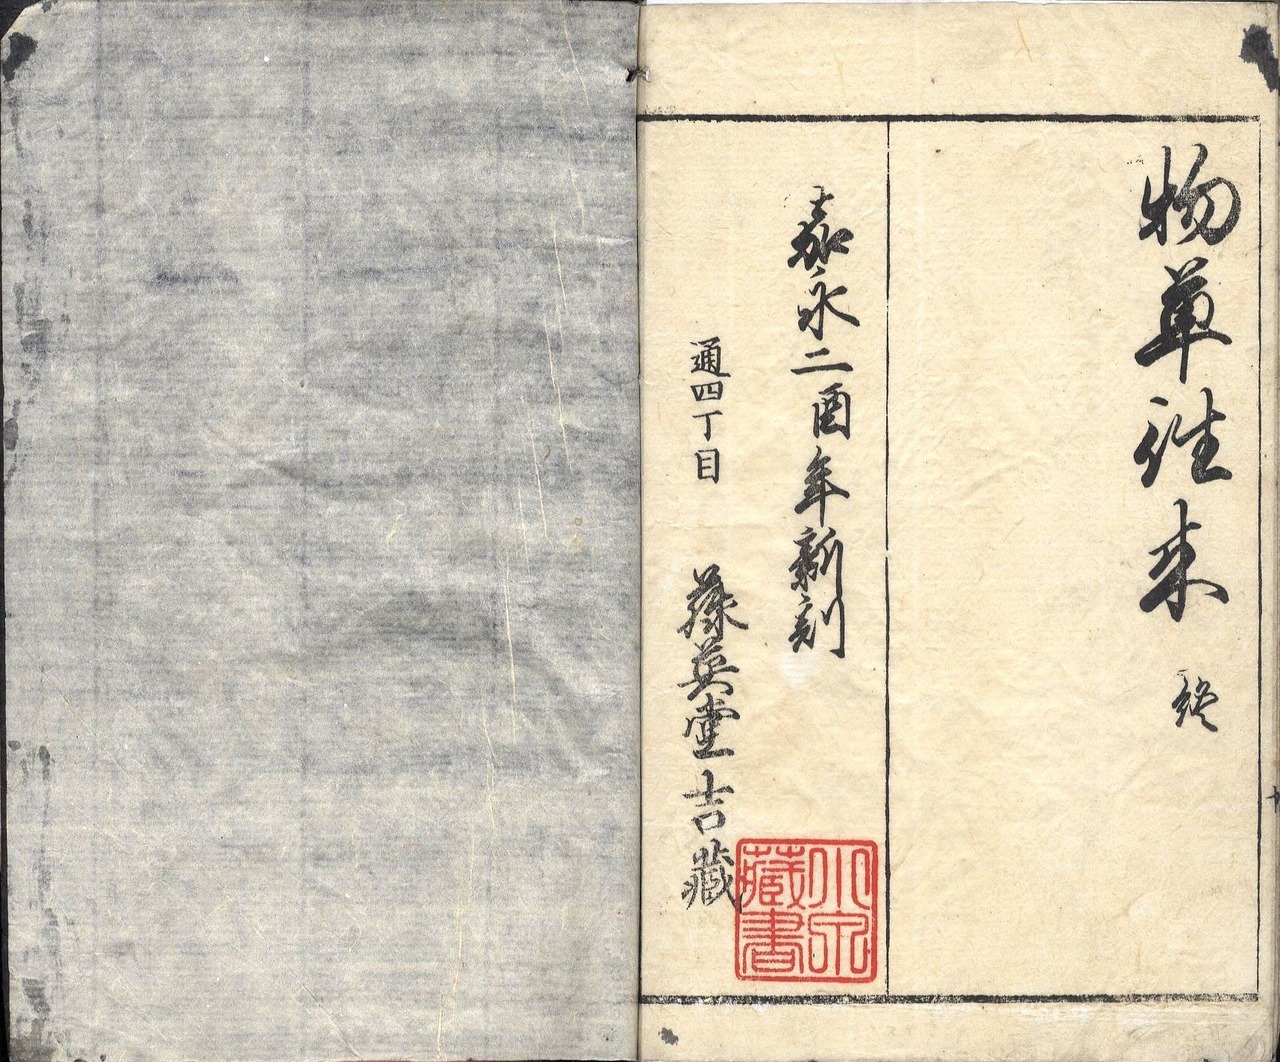 物草往来 終
嘉永二酉年新刻
通四丁目 藤英堂吉藏
小泉
藏書